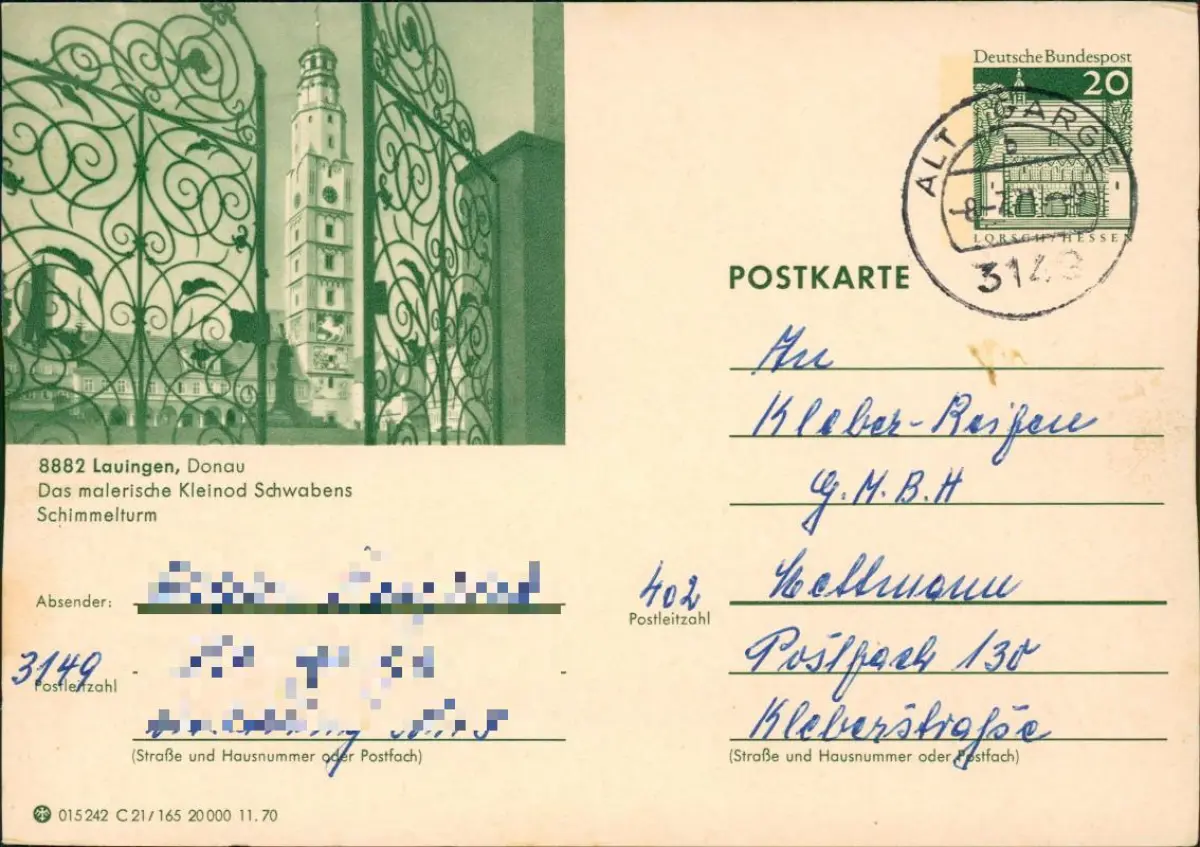 Deutsche Bundespost
20
ALT GARGE
b
-8.-7.71
LORSCH/HESSEN
3149
POSTKARTE
An
Kleber-Reifen
G.M.B.H
402 Mettmann
Postleitzahl
Postfach 130
Kleberstraße
(Straße und Hausnummer oder Postfach)
8882 Lauingen, Donau
Das malerische Kleinod Schwabens
Schimmelturm
Absender:
3149
Postleitzahl
(Straße und Hausnummer oder Postfach)
015242 C 21/165 20000 11.70